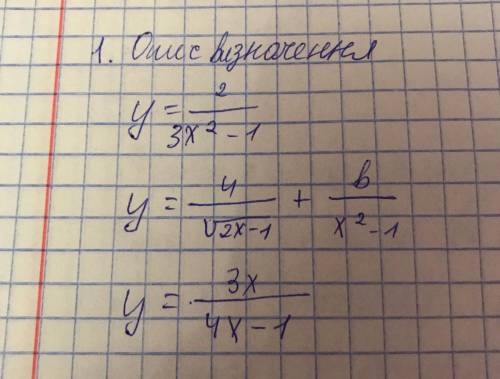 1. Опис визначення
y = 2 / 3x² - 1
y = 4 / √2x-1 + b / x² - 1
y = 3x / 4x - 1